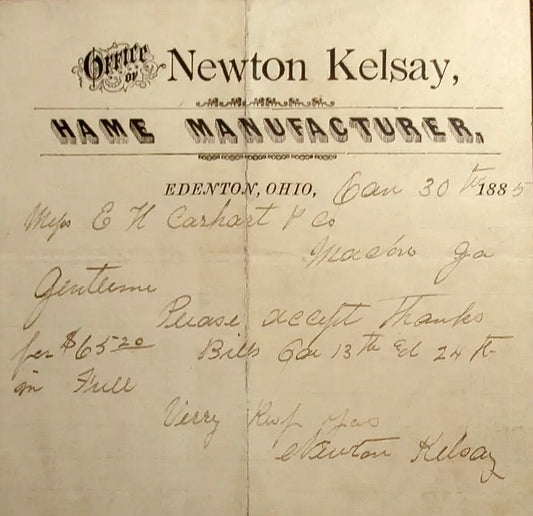 OFFICE OF NEWTON KELSAY,
HAME MANUFACTURER,
EDENTON, OHIO, Jan 30th 1885
Mess E H Carhart & Co
Macon Ga
Gentleme
Please accept Thanks
for $65.20 Bills Jan 13th & 24th
in Full
Verry Resp yos
Newton Kelsay